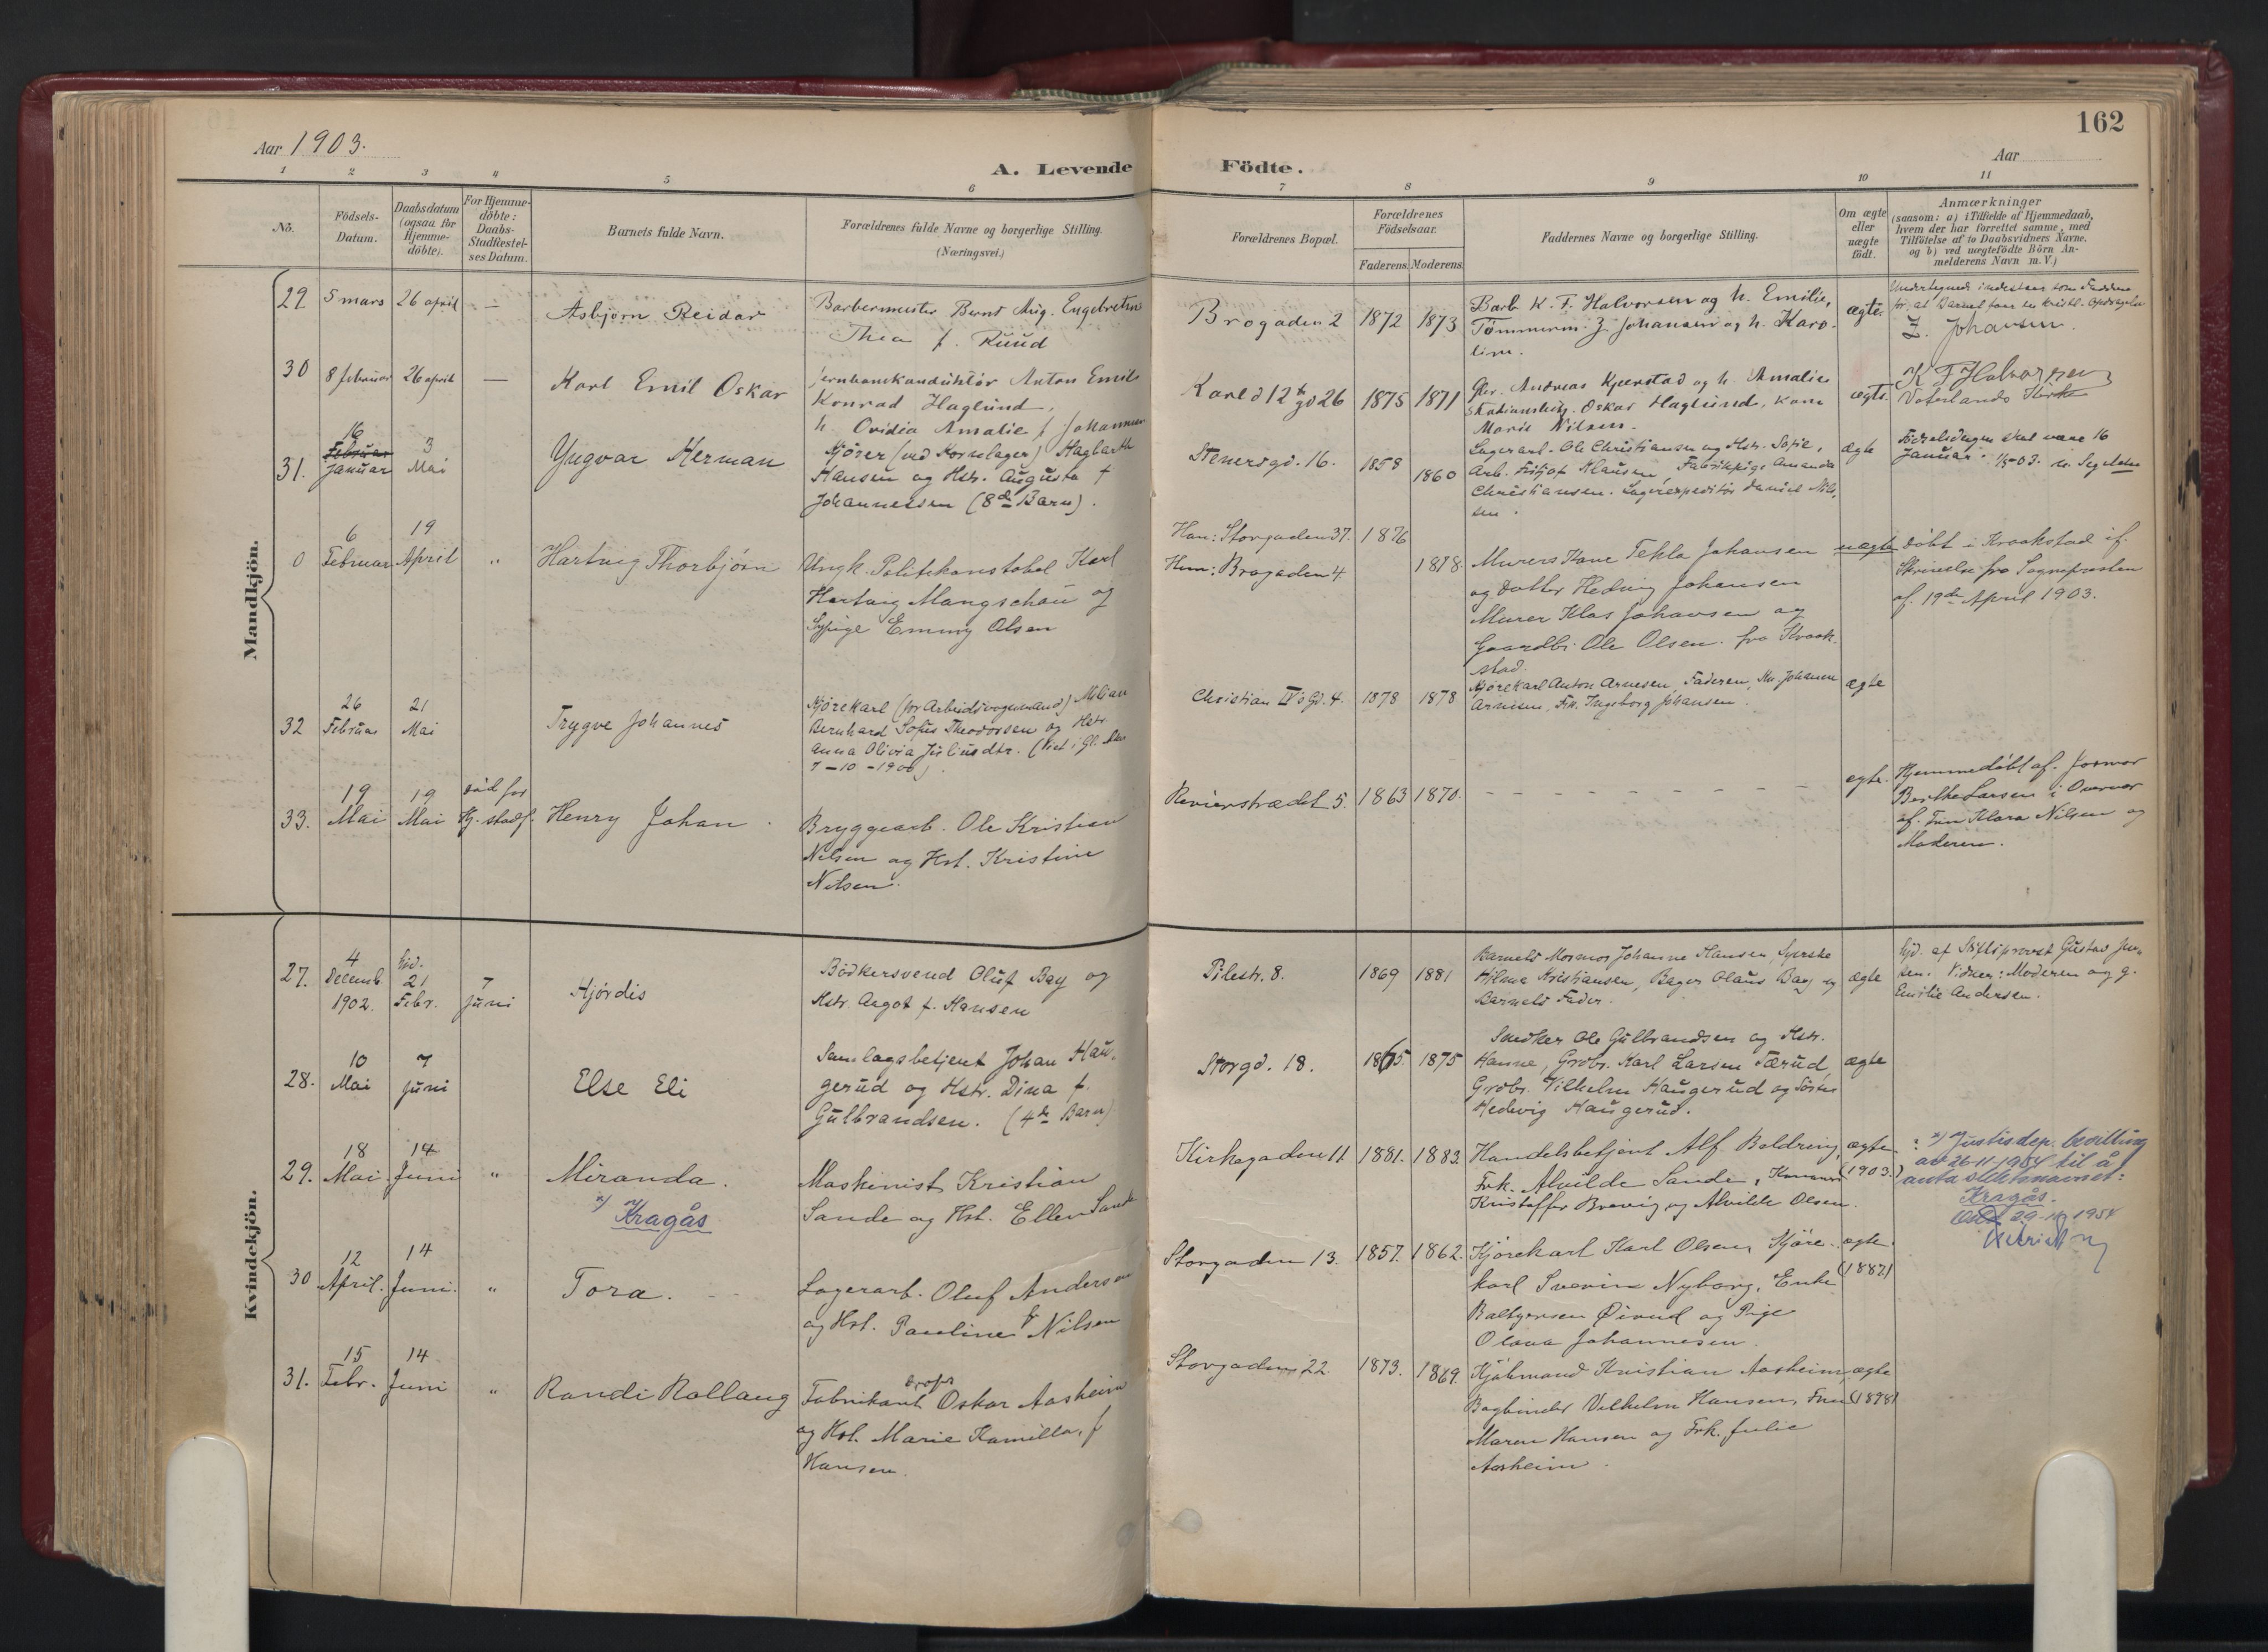 162
Aar 1903.
A. Levende Födte.
Aar
1 2 3 4 5 6 7 8 9 10 11
Nö.
Födsels-Datum.
Daabsdatum (ogsaa for Hjemme-döbte).
For Hjemme-döbte: Daabs-Stadfæstel-ses Datum.
Barnets fulde Navn.
Forældrenes fulde Navne og borgerlige Stilling.
(Næringsvei.)
Forældrenes Bopæl.
Forældrenes Födselsaar.
Faderens. Moderens.
Faddernes Navne og borgerlige Stilling.
Om ægte eller uægte födt.
Anmærkninger
(saasom: a) i Tilfælde af Hjemmedaab,
hvem der har forrettet samme, med
Tilföielse af to Daabsvidners Navne.
og b) ved uægtefödte Börn An-
melderens Navn m. V.)
Mandkjön.
29 5 mars 26 april — Asbjørn Reidar
Barbermester Bernt Aug. Engebretsen
Thea f. Ruud
Brogaden 2 1872 1873
Barb K. F. Halvorsen og h. Emilie,
Tømmerm. Z Johansen og h. Karo-
line.
ægte.
Undertegnede indestaar som Faddere
for, at Barnet faar en kristl. Opdragelse
Z. Johansen.
K F Halvorsen
30 8 februar 26 april — Karl Emil Oskar
Jernbanekonduktør Anton Emil
Konrad Haglund,
h. Ovidia Amalie f Johannesen
Karl d 12 gd 26 1875 1871
Gbr. Andreas Kjærstad og h. Amalie
Stationsbetj. Oskar Haglund, kone
Marie Nilsen.
ægte.
Vaterlands Kirke
31. 16 Februar Januar 3 Mai Yngvar Herman
Kjører (ved Kornlager) Hagbarth
Hansen og Hstr. Augusta f
Johannessen (8de Barn).
Stenersgd. 16. 1858 1860
Lagerarb. Ole Christiansen og Hstr. Sofie,
Arb. Fritjof Klausen, Fabrikpige Amanda
Christiansen. Lagerexpeditør Daniel Nil-
sen.
ægte
Fødselsdagen skal være 16
Januar.
0 6 Februar 19 April " Hartvig Thorbjørn
Ungk. Politikonstabel Karl
Hartvig Mangschou og
Sypige Emmy Olsen
Han: Storgaden 37. 1876
Hun: Brogaden 4 1878
Murers Kone Tekla Johansen
og datter Hedvig Johansen
Murer Klas Johansen og
Gaardbr. Ole Olsen. fra Kraak-
stad.
uægte
døbt i Kraakstad if.
Skrivelse fra Sognepresten
af. 19de April 1903.
32 26 Februar 21 Mai Trygve Johannes
Kjørekarl (for Arbeidsvognmand)
Bernhard Sofus Theodorsen og Hstr.
Anna Olivia Juliusdtr. (Viet i Gl. Aker
7-10-1900).
Christian IVs Gd. 4. 1878 1878
Kjørekarl Anton Arnesen, Faderen, Johanne
Arnesen, Frk. Ingeborg Johansen.
ægte
33. 19 Mai 19 Mai død før Hj. stadf. Henry Johan
Bryggearb. Ole Kristian
Nilsen og Hst. Kristine
Nilsen.
Revierstrædet 5. 1863 1870.
ægte.
Hjemmedøbt af. Jormor
Berthe Larsen i Overvær
af. Fru Klara Nilsen og
Moderen.
Kvindekjön.
27. 4 Decemb. 1902. hjd. 21 Febr. 7 Juni Hjördis
Bödkersvend Oluf Bay og
Hstr. Aagot f. Hansen
Pilestr. 8. 1869 1881
Barnets Mormor Johanne Hansen, Syerske
Hilma Kristiansen, Bager Olaus Bay og
Barnets Fader.
ægte
hjd. af Stiftsprovst Gustav Jen-
sen. Vidner: Moderen og g.
Emilie Andersen.
28. 10 Mai 7 Juni Else Eli
Samlagsbetjent Johan Hau-
gerud og Hstr. Dina f.
Gulbrandsen. (4de Barn)
Storgd. 18. 1865 1875
Snedker Ole Gulbrandsen og Hstr.
Hanne, Grdbr. Karl Larsen Færud,
Grdbr. Vilhelm Haugerud og Søster
Hedevig Haugerud.
ægte
29. 18 Mai. 14 Juni " Miranda.
x) Kragås
Maskinist Kristian
Sande og Hst. Ellen Sande
Kirkegaden 11 1881. 1883.
Handelsbetjent Alf Beldring,
Frk. Alvilde Sande,
Kristoffer Brevig og Alvilde Olsen.
ægte. (1903.)
x) Justisdep. bevilling
av 26-11-1954 til å
anta slektsnavnet:
Kragås.
30 12 April. 14 Juni. " Tora.
Lagerarb. Oluf Andersen
og Hst. Pauline f Nilsen
Storgaden 13. 1857. 1862.
Kjørekarl Karl Olsen, Kjøre-
karl Severin Nyborg, Enke
Øivind og Pige
Olava Johannesen.
ægte. (1882)
31. 15 Febr. 14 Juni " Randi Rollaug
Fabrikant Oskar Aasheim
og Hst. Marie Kamilla, f
Hansen.
Storgaden 22. 1873. 1869.
Kjøbmand Kristian Aasheim,
Bogbinder Vilhelm Hansen, Fru
Maren Hansen og Frk. Julie
Aasheim.
ægte (1898)